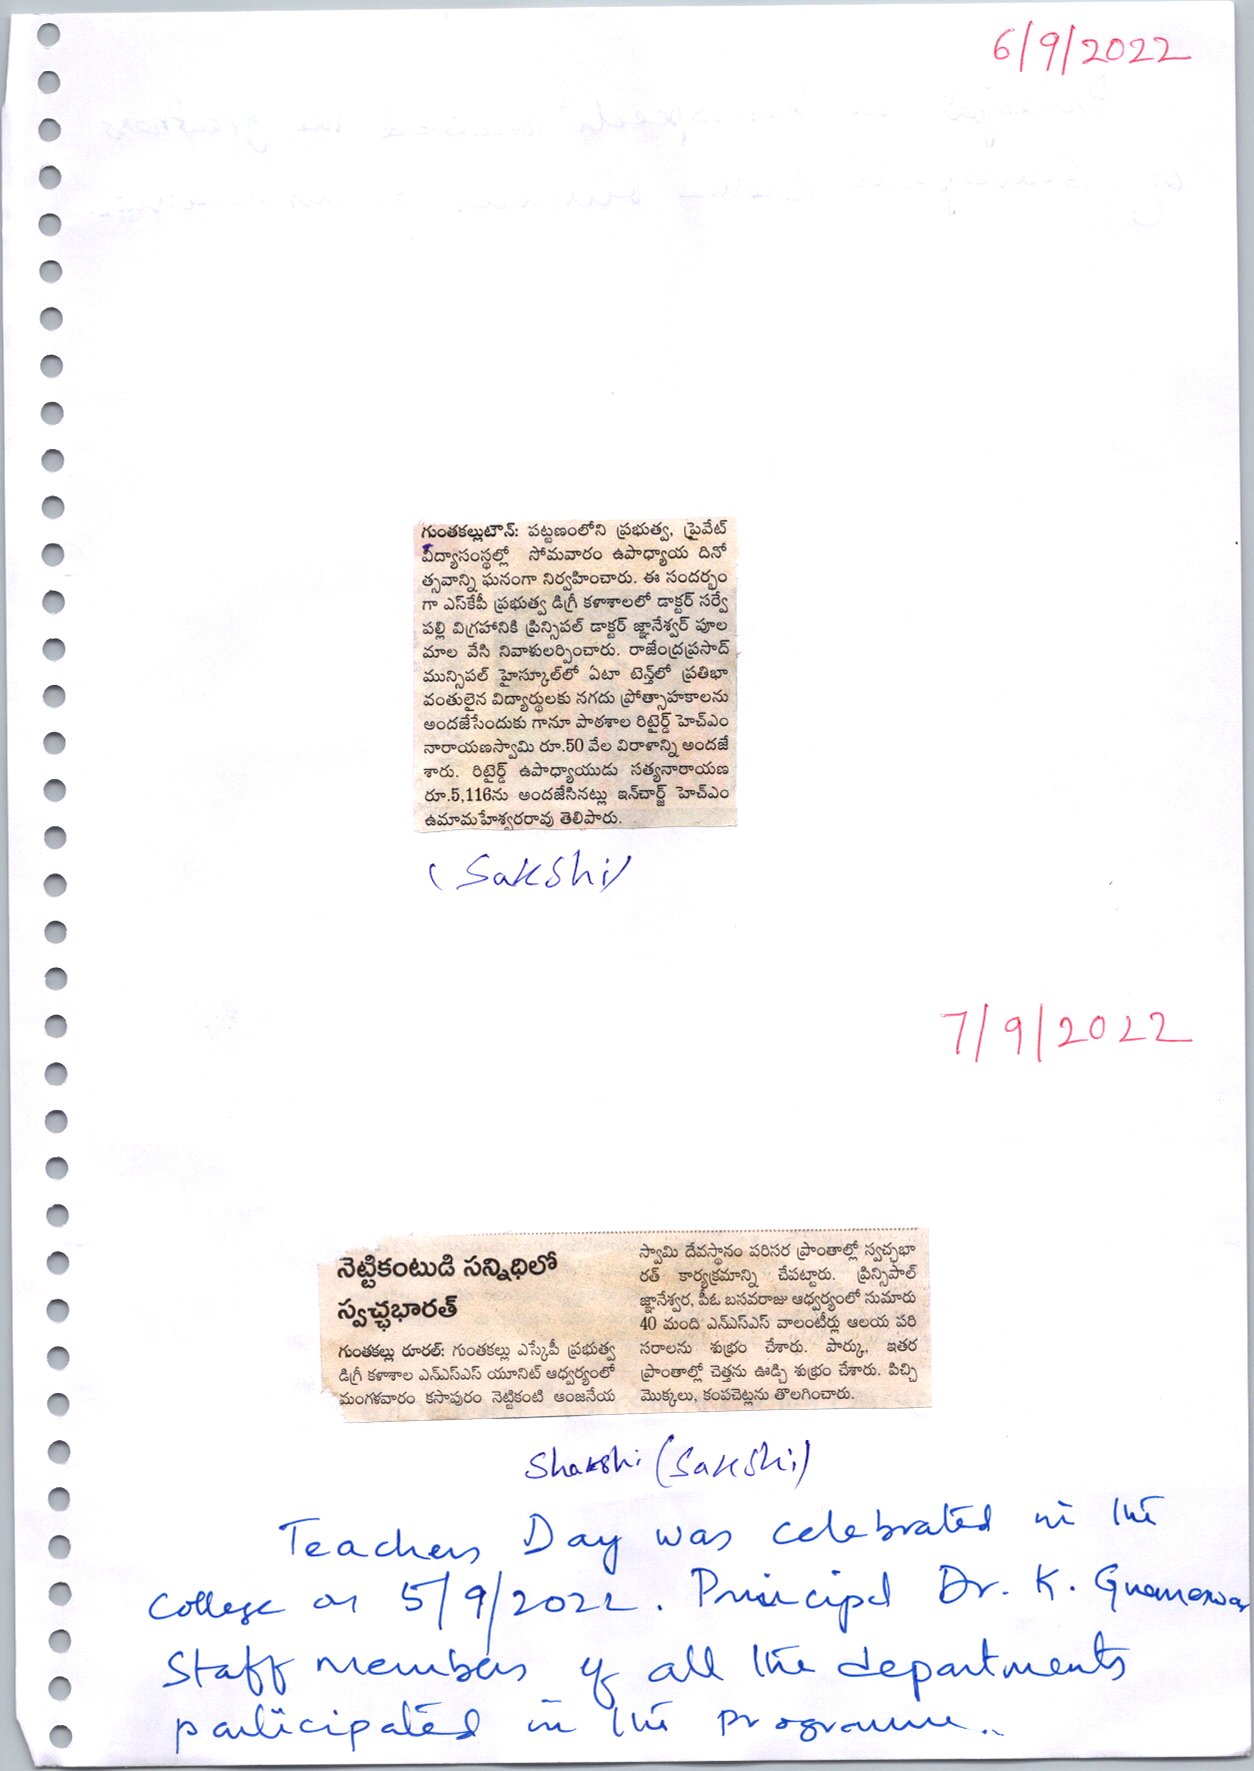 6/9/2022
గుంతకల్లుటౌన్: పట్టణంలోని ప్రభుత్వ, ప్రైవేట్
విద్యాసంస్థల్లో సోమవారం ఉపాధ్యాయ దినో
త్సవాన్ని ఘనంగా నిర్వహించారు. ఈ సందర్భం
గా ఎస్‌కేపీ ప్రభుత్వ డిగ్రీ కళాశాలలో డాక్టర్ సర్వే
పల్లి విగ్రహానికి ప్రిన్సిపల్ డాక్టర్ జ్ఞానేశ్వర్ పూల
మాల వేసి నివాళులర్పించారు. రాజేంద్రప్రసాద్
మున్సిపల్ హైస్కూల్‌లో ఏటా టెన్త్‌లో ప్రతిభా
వంతులైన విద్యార్థులకు నగదు ప్రోత్సాహకాలను
అందజేసేందుకు గానూ పాఠశాల రిటైర్డ్ హెచ్ఎం
నారాయణస్వామి రూ.50 వేల విరాళాన్ని అందజే
శారు. రిటైర్డ్ ఉపాధ్యాయుడు సత్యనారాయణ
రూ.5,116ను అందజేసినట్లు ఇన్‌చార్జ్ హెచ్ఎం
ఉమామహేశ్వరరావు తెలిపారు.
(Sakshi)
7/9/2022
నెట్టికంటుడి సన్నిధిలో
స్వచ్ఛభారత్
గుంతకల్లు రూరల్: గుంతకల్లు ఎస్కేపీ ప్రభుత్వ
డిగ్రీ కళాశాల ఎన్ఎస్ఎస్ యూనిట్ ఆధ్వర్యంలో
మంగళవారం కసాపురం నెట్టికంటి ఆంజనేయ
స్వామి దేవస్థానం పరిసర ప్రాంతాల్లో స్వచ్ఛభా
రత్ కార్యక్రమాన్ని చేపట్టారు. ప్రిన్సిపాల్
జ్ఞానేశ్వర, పీఓ బసవరాజు ఆధ్వర్యంలో సుమారు
40 మంది ఎన్ఎస్ఎస్ వాలంటీర్లు ఆలయ పరి
సరాలను శుభ్రం చేశారు. పార్కు, ఇతర
ప్రాంతాల్లో చెత్తను ఊడ్చి శుభ్రం చేశారు. పిచ్చి
మొక్కలు, కంపచెట్లను తొలగించారు.
Shakshi (Sakshi)
Teachers Day was celebrated in the
college on 5/9/2022. Principal Dr. K. Gnaneswar
Staff members of all the departments
participated in the programme..